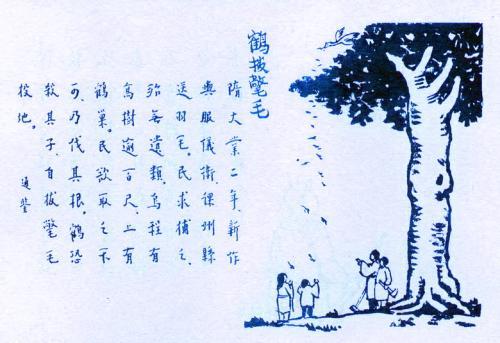 鶴拔氅毛
隋大業二年，新作
輿服儀衛，課州縣
送羽毛。民求捕之，
殆無遺類。烏程有
高樹逾百尺，上有
鶴巢。民欲取之，不
可，乃伐其根。鶴恐
殺其子，自拔氅毛
投地。
通鑒